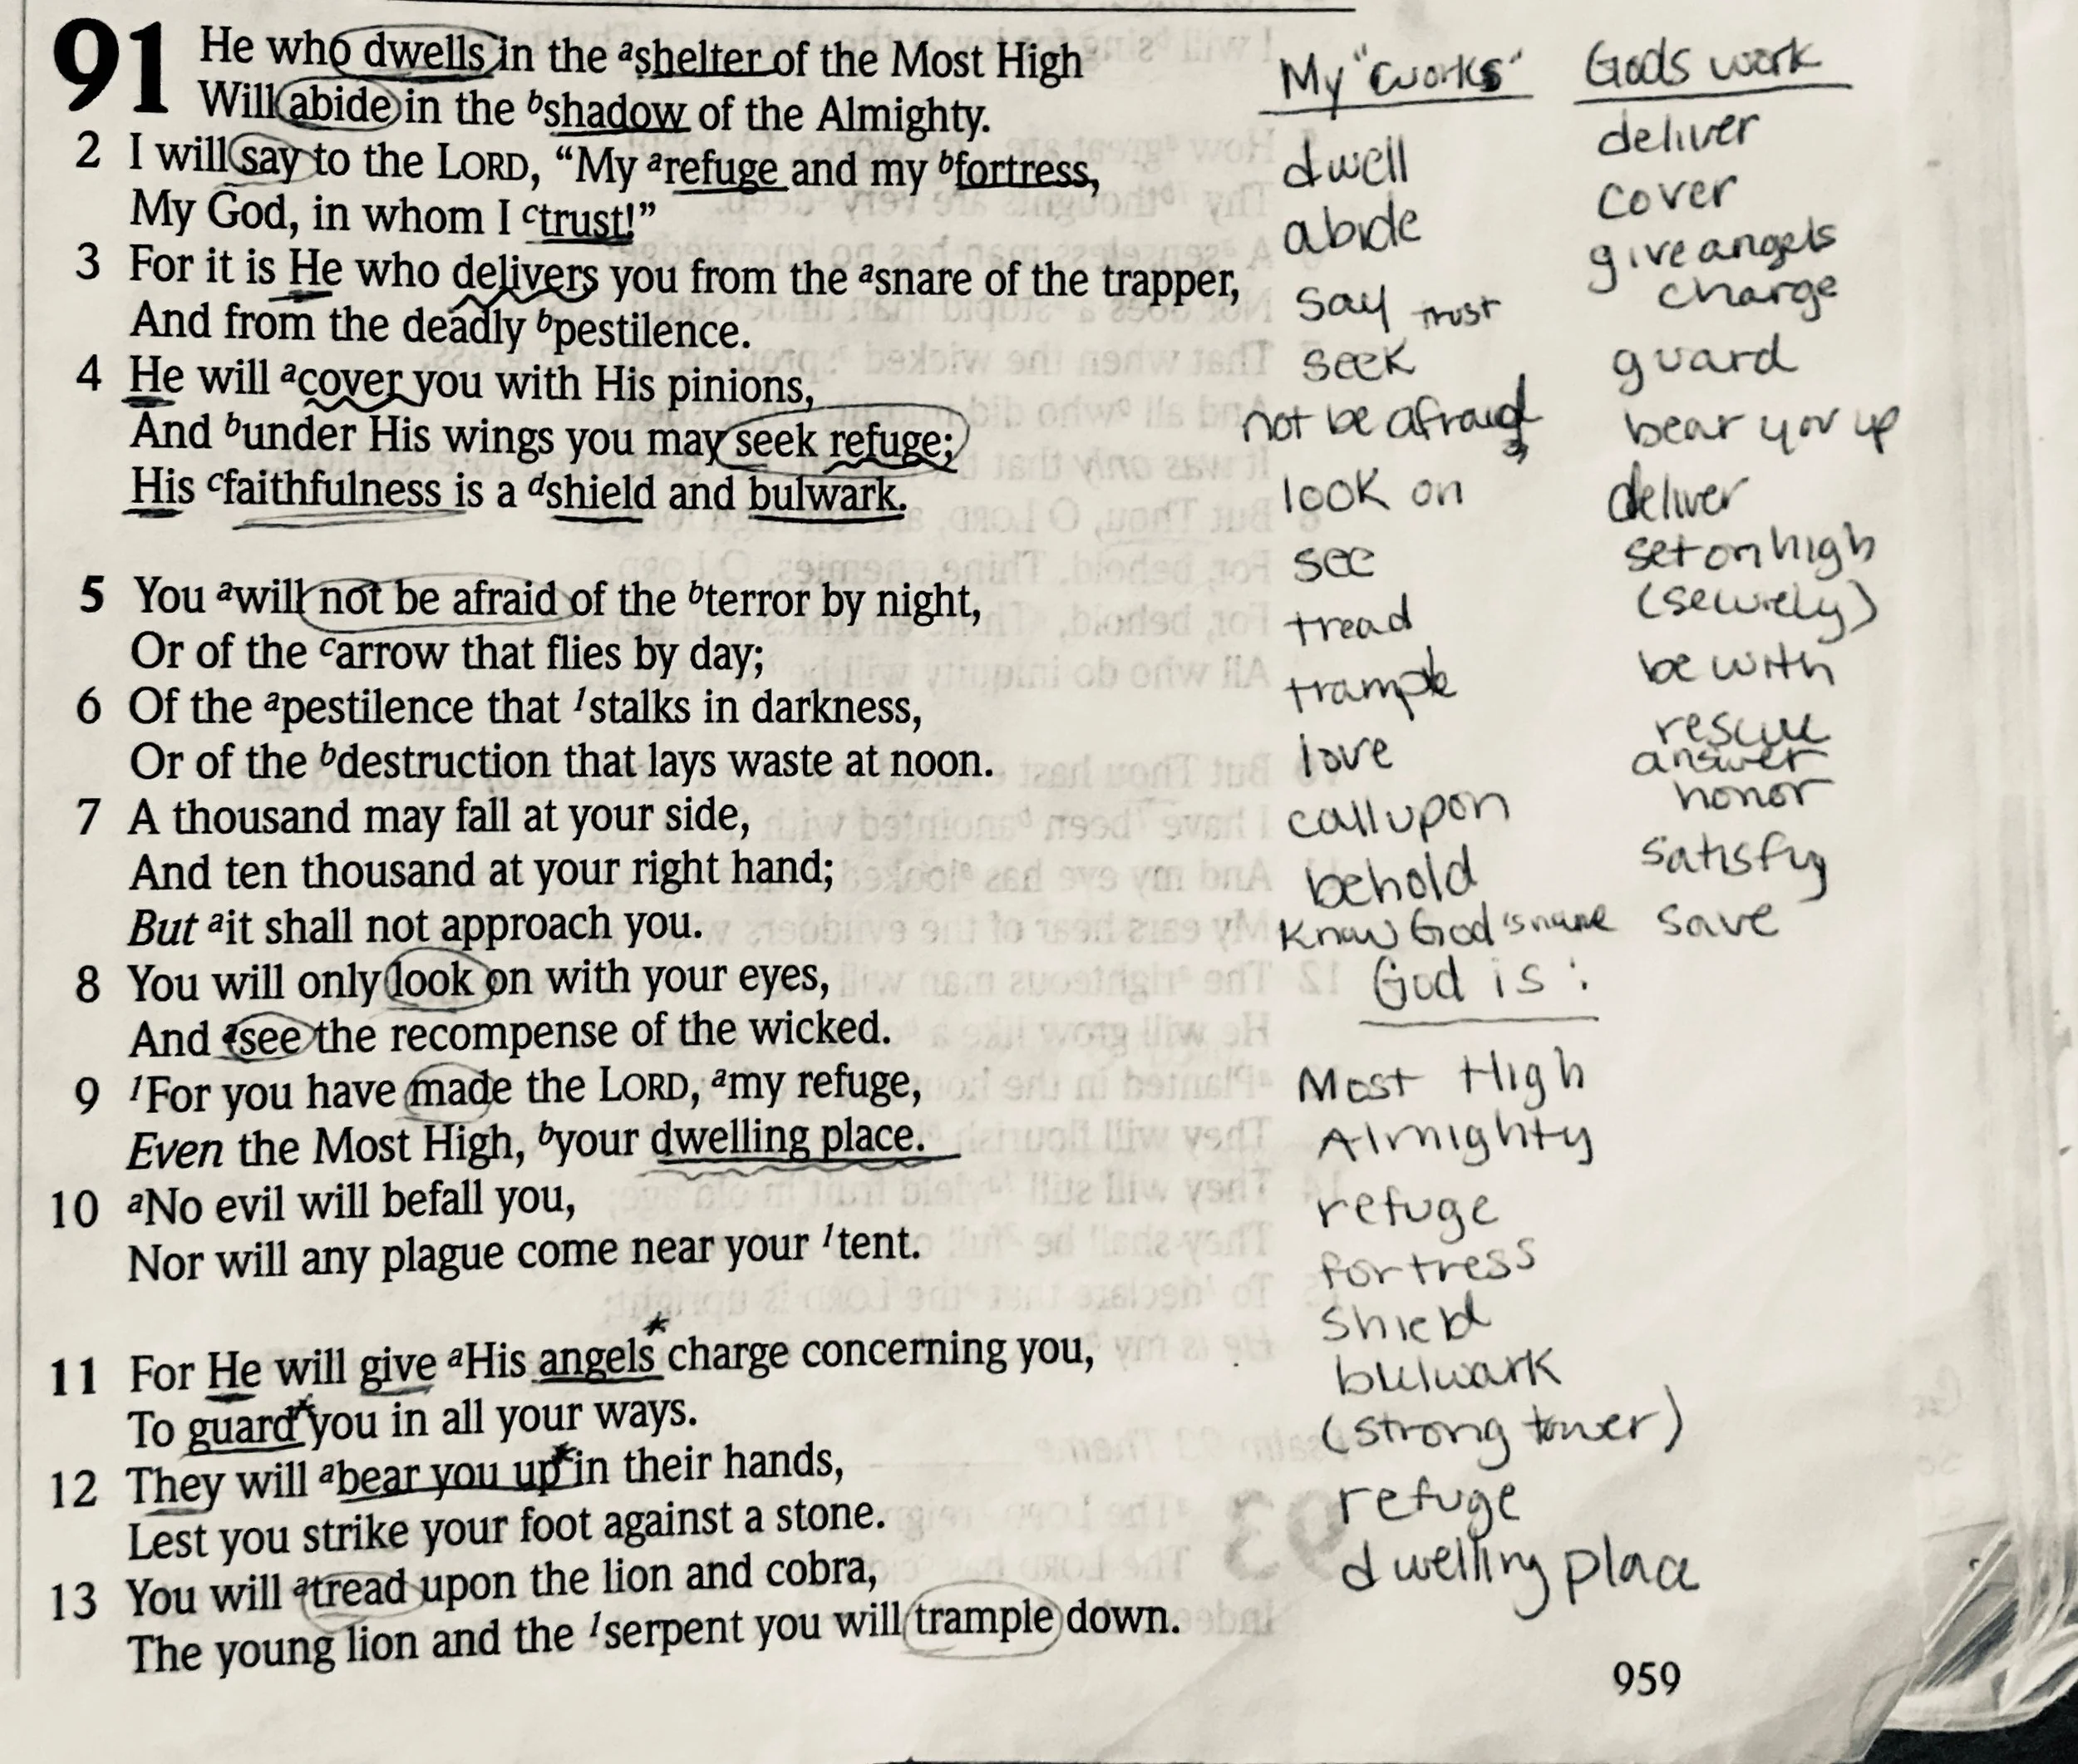 91 He who dwells in the ᵃshelter of the Most High
Will abide in the ᵇshadow of the Almighty.
2 I will say to the LORD, “My ᵃrefuge and my ᵇfortress,
My God, in whom I ᶜtrust!”
3 For it is He who delivers you from the ᵃsnare of the trapper,
And from the deadly ᵇpestilence.
4 He will ᵃcover you with His pinions,
And ᵇunder His wings you may seek refuge;
His ᶜfaithfulness is a ᵈshield and bulwark.
5 You ᵃwill not be afraid of the ᵇterror by night,
Or of the ᶜarrow that flies by day;
6 Of the ᵃpestilence that ¹stalks in darkness,
Or of the ᵇdestruction that lays waste at noon.
7 A thousand may fall at your side,
And ten thousand at your right hand;
But ᵃit shall not approach you.
8 You will only look on with your eyes,
And ᵃsee the recompense of the wicked.
9 ¹For you have made the LORD, ᵃmy refuge,
Even the Most High, ᵇyour dwelling place.
10 ᵃNo evil will befall you,
Nor will any plague come near your ¹tent.
11 For He will give ᵃHis angels* charge concerning you,
To guard* you in all your ways.
12 They will ᵃbear you up* in their hands,
Lest you strike your foot against a stone.
13 You will ᵃtread upon the lion and cobra,
The young lion and the ¹serpent you will trample down.
My "works"
dwell
abide
say trust
seek
not be afraid
look on
see
tread
trample
love
call upon
behold
Know God's name
Gods work
deliver
cover
give angels
charge
guard
bear you up
deliver
set on high
(securely)
be with
rescue
answer
honor
satisfy
save
God is:
Most High
Almighty
refuge
fortress
shield
bulwark
(strong tower)
refuge
dwelling place
959